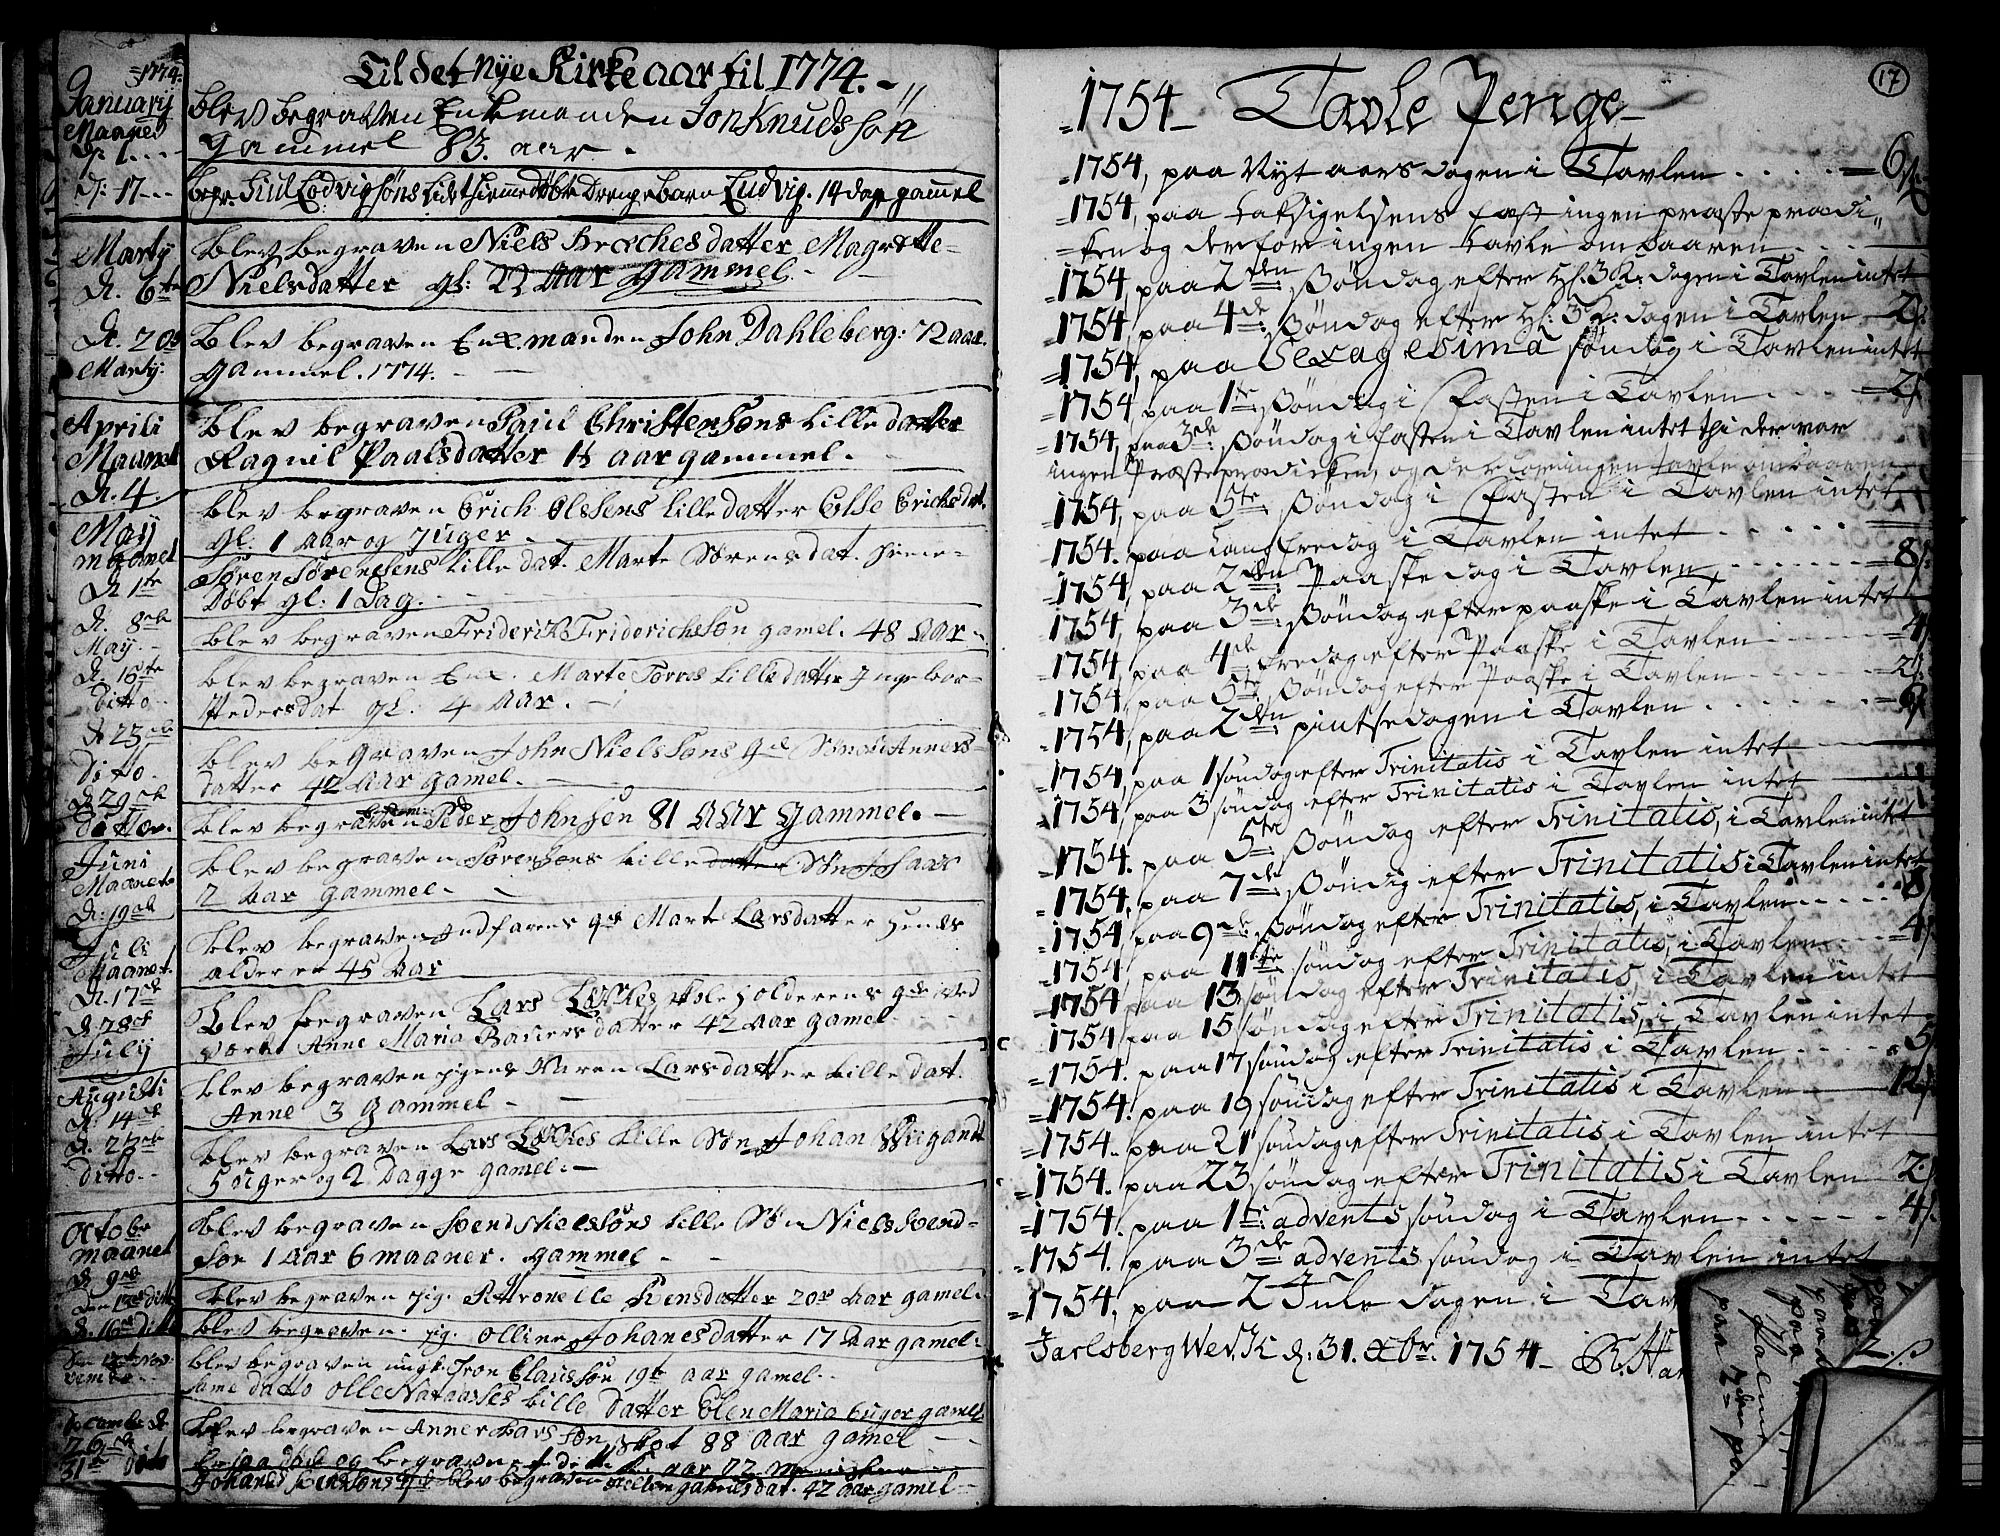 Til det Nye Kirke aar til 1774.
=1774.
January
Maanet
d. 1.
Blev begraven Enkemanden Jon Knudssøn
Gammel 83. aar.
d: 17
begr. Juul Lodvigsøns lidet hiemedøbt Drengebarn Ludvig. 14 dage gammel
Marty
d. 6te
Blev begraven Niels Broches datter Magrette
Nielsdatter gl: 22 Aar gammel.
d. 20
Marty:
Blev begraven Enk.manden John Dahleberg: 72 aar
gammel. 1774.
Aprili
Maanet
d. 4.
Blev begraven Paul Christensøns lille datter
Ragnil Paalsdatter 1½ aar gammel.
May
maanet
d 1te
Blev begraven Erich Olssens lille datter Else Erichsdat.
gl: 1 Aar og 7 uger.
Søren Sørensens lille dat. Marte Sørensdat. hieme-
Døbt gl: 1 Dag.
d. 8de
May.
Blev begraven Friderik Friderichssøn gamel. 48 Aar
d. 16te
ditto
Blev begraven Enk. Marte Torres lille datter Ingebor
Pedersdat gl: 4 Aar.
d 23de
ditto.
Blev begraven John Nielssøns Anners-
datter 42 Aar gamel.
d 29de
ditto.
Blev begraven Peder Johnsen 81 AAr Gammel.
Juni
Maanet
d: 19de
Blev begraven Sørensøns lille datter Søn Isaac
2 Aar gammel.
Juli
Maanet.
d. 17de
Blev begraven Marte Larsdatter hendes
alder er 45 Aar
d. 28de
July
Blev begraven Lars Løches Skoleholderens
Anne Maria Bauers datter 42 Aar gamel
Augusti
d: 14de
Blev begraven pigens Karen Larsdatter lille dat.
Anne 3 Gammel
ditto
Blev begraven Lars Løches lille Søn Johan Wigandt
5 uger og 2 Dagge gamel.
Octobr
maanet
d 9de
Blev begraven Svend Nielssøns lille Søn Niels Svend-
søn 1 Aar 6 maaner. gammel
Blev begraven pig. Pttronelle Jensdatter 20 Aar gamel.
d. 16de ditto
Blev begraven. pig. Olline Johanesdatter 17 Aar gamel
Blev begraven ungk. Iron Claussøn 19 aar gamel.
same datto Olle lille datter Elen Maria 6 uger gamel
Decembr d
26de
Blev begraven Anner Larssøn Skot 88 Aar gamel
31te dito
Johanes Jensøns blev begraven gabrielsdat. 42 aar gamel
17
=1754- Tavle Penge-
=1754, paa Nyt aars dagen i Tavlen . . . . = 6 s
=1754, paa Lafsigelsens fæst ingen præste prædi,,
=ken og derfor ingen tavle ombaaren
=1754, paa 2den Søndag efter H: 3 K: dagen i Tavlen intet
=1754, paa 4de Søndag efter H: 3 K: dagen i Tavlen - 2 s
=1754, paa Sexagesima søndag i Tavlen intet
=1754, paa 1te Søndag i Fasten i Tavlen . . . = 2 s
=1754, paa 3de Søndag i fasten i Tavlen intet thi der var
ingen Præsteprædicken, og derfor ingen tavle ombaaren
=1754, paa 5te Søndag i Fasten i Tavlen intet
1754. paa Langfredag i Tavlen intet
=1754, paa 2den Paaskedag i Tavlen . . . . = 8 s
1754, paa 3de Søndag efter paaske i Tavlen intet
1754, paa 4de fredag efter Paaske i Tavlen = 4 s
1754 paa 5te Søndag efter Paaske i Tavlen = 2 s
=1754, paa 2den pintsedagen i Tavlen = 6 s
=1754, paa 1 søndag efter Trinitatis i Tavlen intet
=1754, paa 3 søndag efter Trinitatis i Tavlen intet
1754. paa 5te Søndag efter Trinitatis, i Tavlen intet
=1754, paa 7de Søndag efter Trinitatis i Tavlen intet
=1754, paa 9de Søndag efter Trinitatis, i Tavlen . . . . . 8 s
1754 paa 11te søndag efter Trinitatis, i Tavlen . . = 4 s
=1754 paa 13 søndag efter Trinitatis, i Tavlen intet
1754 paa 15 søndag efter Trinitatis, i Tavlen intet
=1754. paa 17 søndag efter Trinitatis i Tavlen . . . . 5 s
=1754. paa 19 søndag efter Trinitatis i Tavlen 12 s
=1754.. paa 21 søndag efter Trinitatis i Tavlen intet
=1754. paa 23 søndag efter Trinitatis i Tavlen 2 s
=1754. paa 1te advents søndag i Tavlen . . . . . 4 s
=1754. paa 3de advents søndag i Tavlen intet
=1754, paa 2 Jule dagen i Tav
Jarlsberg Werk d: 31. Xbr: 1754- R. Har
paa 2den pa
Palme
paa